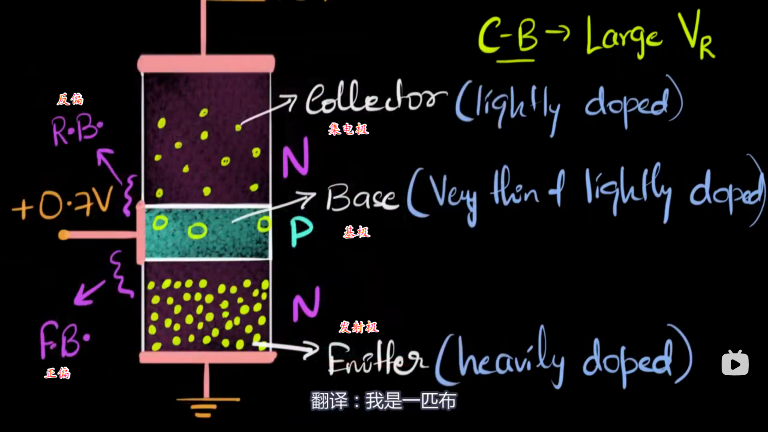 C-B → Large VR
反偏
R.B.
Collector (lightly doped)
集电极
N
+0.7V
Base (Very thin & lightly doped)
P
基极
F.B.
正偏
N
发射极
Emitter (heavily doped)
翻译：我是一匹布